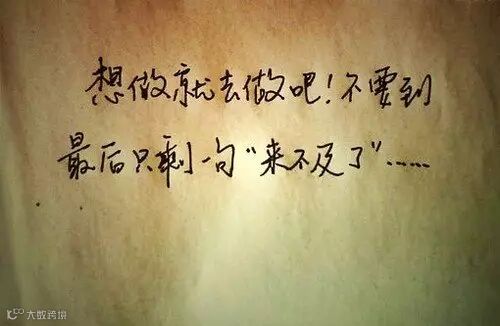 想做就去做吧！不要到
最后只剩一句“来不及了”……
大数跨境